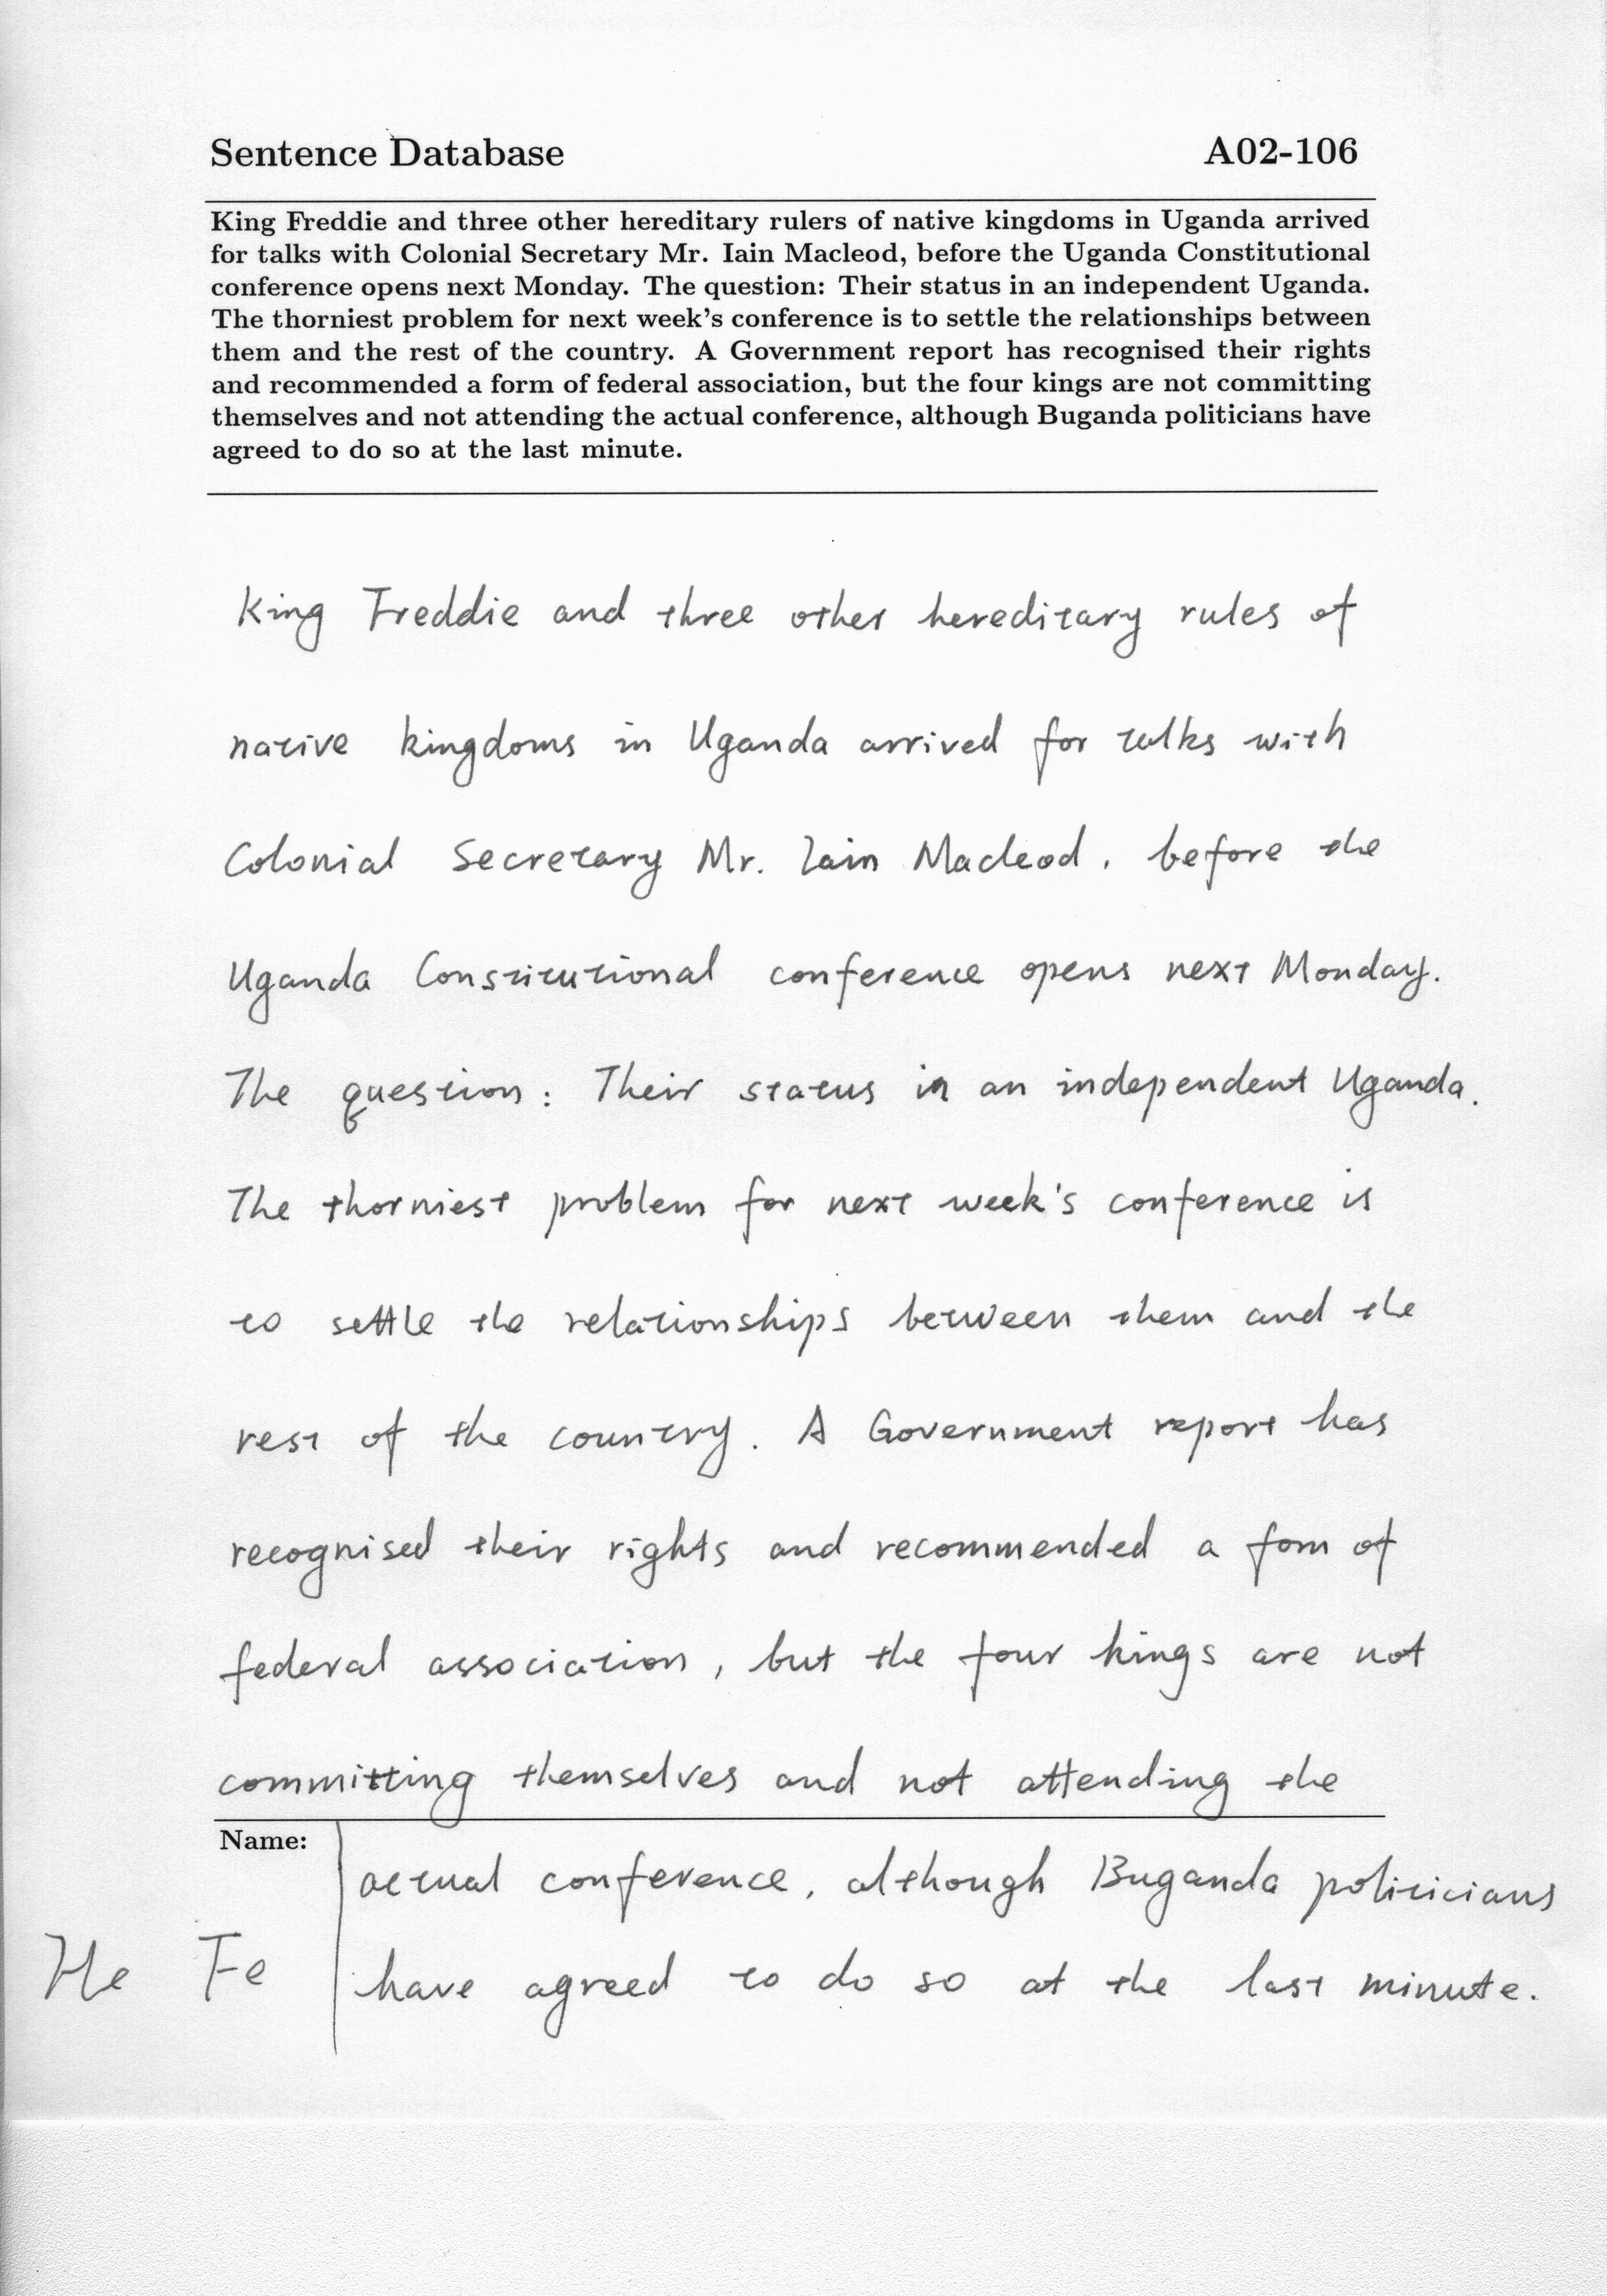 Sentence Database A02-106
King Freddie and three other hereditary rulers of native kingdoms in Uganda arrived
for talks with Colonial Secretary Mr. Iain Macleod, before the Uganda Constitutional
conference opens next Monday. The question: Their status in an independent Uganda.
The thorniest problem for next week's conference is to settle the relationships between
them and the rest of the country. A Government report has recognised their rights
and recommended a form of federal association, but the four kings are not committing
themselves and not attending the actual conference, although Buganda politicians have
agreed to do so at the last minute.
King Freddie and three other hereditary rules of
native kingdoms in Uganda arrived for talks with
Colonial Secretary Mr. Iain Macleod, before the
Uganda Constitutional conference opens next Monday.
The question: Their status in an independent Uganda.
The thorniest problem for next week's conference is
to settle the relationships between them and the
rest of the country. A Government report has
recognised their rights and recommended a fom of
federal association, but the four kings are not
committing themselves and not attending the
Name:
actual conference, although Buganda politicians
He Fe
have agreed to do so at the last minute.